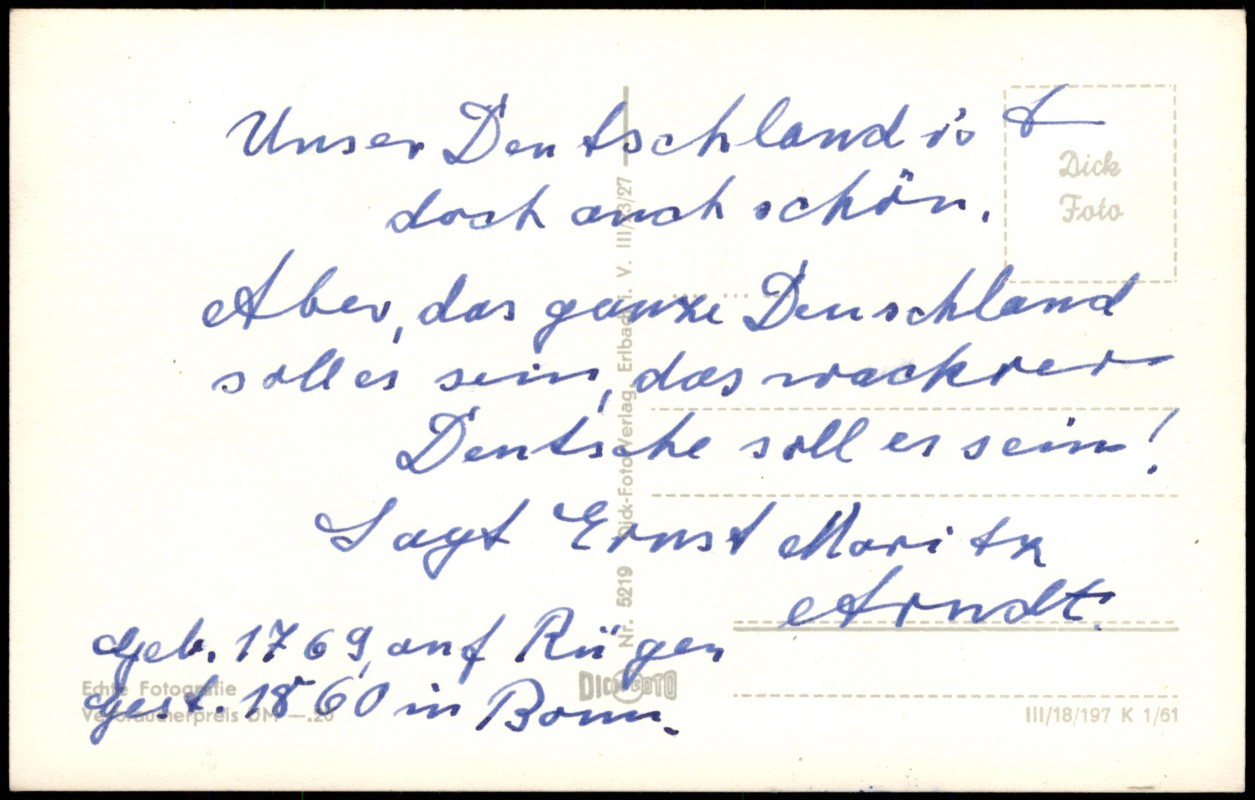 Unser Deutschland ist
doch auch schön.
Aber, das ganze Deuschland
soll es sein, das wackrer
Deutsche soll es sein!
Sagt Ernst Moritz
Arndt.
geb. 1769, auf Rügen
gest. 1860 in Bonn.
Dick
Foto
Nr. 5219 Dick-Foto-Verlag, Erlbach i. V. III/3/27
DICK FOTO
Echte Fotografie
Verbraucherpreis DM —.20
III/18/197 K 1/61